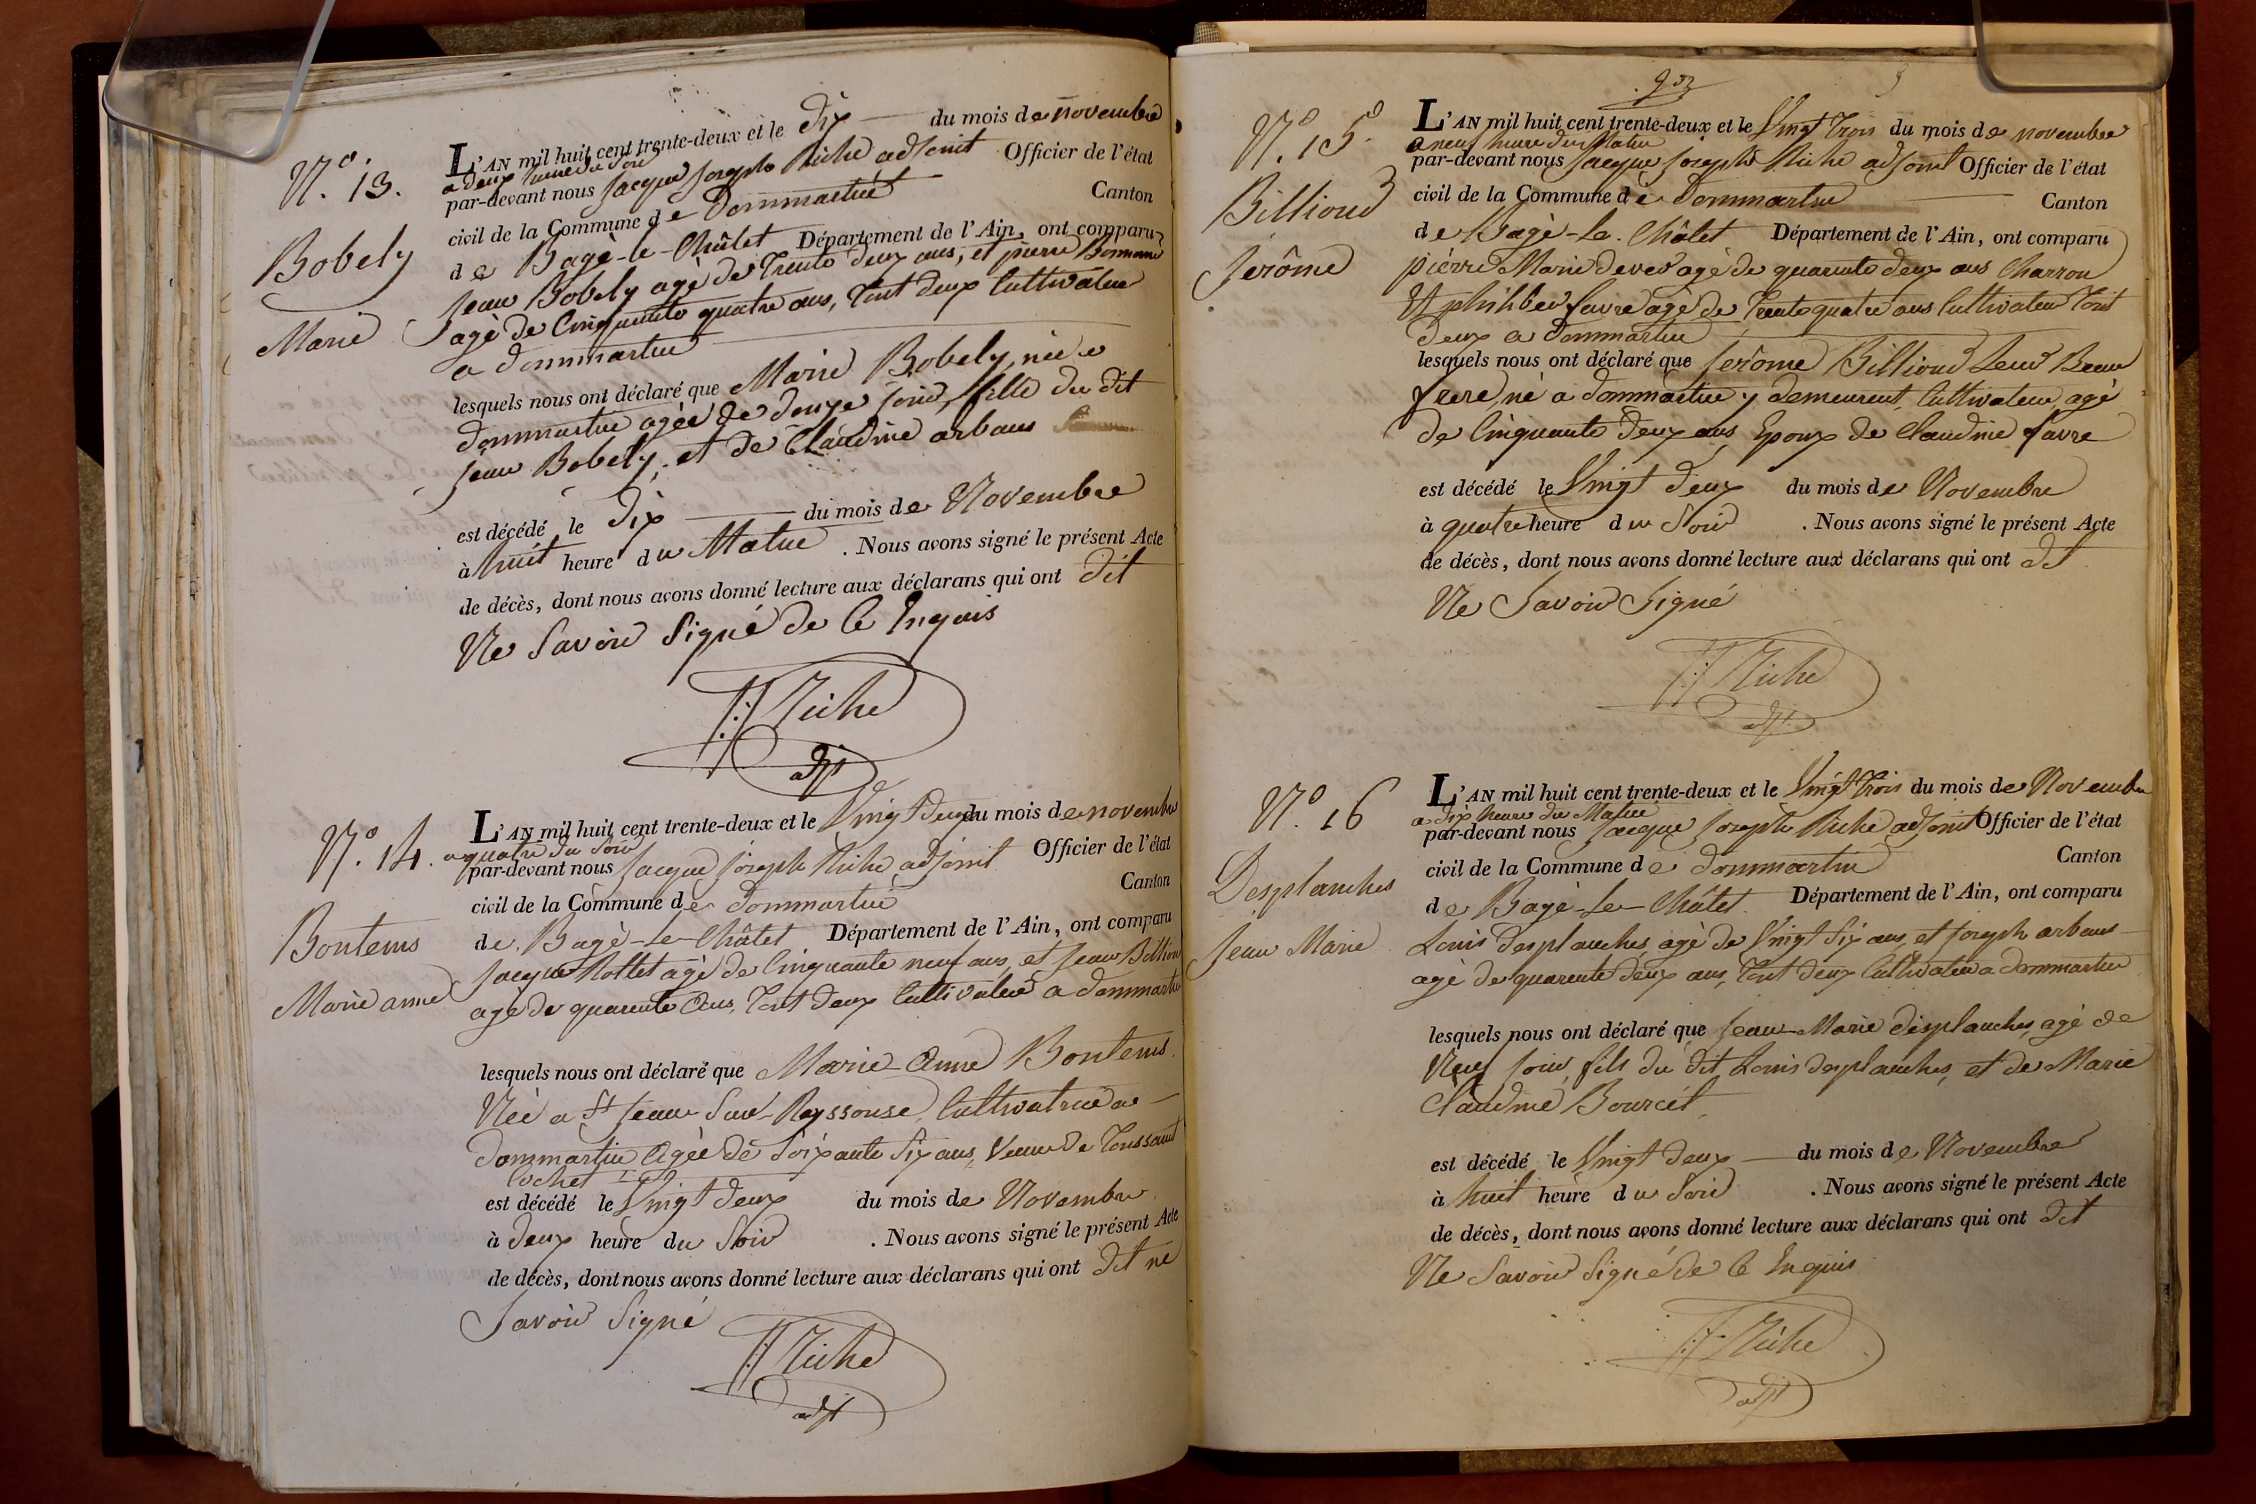 N.° 13.
Bobely
Marie
L'AN mil huit cent trente-deux et le dix du mois de novembre
a deux heure du Soir
par-devant nous Jacque Joseph Riche adjoint Officier de l'état
civil de la Commune de Dommartin Canton
de Bagé-le-Châtel Département de l'Ain, ont comparu
Jean Bobely agé de Trente deux ans, et pierre
agé de Cinquante quatre ans, Tout deux Cultivateur
a dommartin
lesquels nous ont déclaré que Marie Bobely, née a
dommartin agée de douze jour, fille du dit
Jean Bobely, et de Claudine arbans
est décédé le dix du mois de Novembre
à huit heure du Matin . Nous avons signé le présent Acte
de décès, dont nous avons donné lecture aux déclarans qui ont dit
Ne Savoir Signé de Ce Enquis
Riche
adjt
N.° 14.
Bontems
Marie anne
L'AN mil huit cent trente-deux et le Vingt deux du mois de novembre
a quatre du Soir
par-devant nous Jacque Joseph Riche adjoint Officier de l'état
civil de la Commune de Dommartin Canton
de Bagé-le-Châtel Département de l'Ain, ont comparu
Jacque Rollet agé de Cinquante neuf ans, et Jean
agé de quarente Ans, Tout deux Cultivateur a dommartin
lesquels nous ont déclaré que Marie-Anne Bontems
Née a St Jean-Sur-Reyssouse, Cultivatrice a
dommartin Agée de Soixante Six ans, Veuve de Toussaint
Cochet
est décédé le Vingt deux du mois de Novembre
à deux heure du Soir . Nous avons signé le présent Acte
de décès, dont nous avons donné lecture aux déclarans qui ont dit ne
Savoir Signé
Riche
adjt
N.° 15.
Billioud
Jerôme
L'AN mil huit cent trente-deux et le Vingt Trois du mois de novembre
a neuf heure du Matin
par-devant nous Jacque Joseph Riche adjoint Officier de l'état
civil de la Commune de Dommartin Canton
de Bagé-le-Châtel Département de l'Ain, ont comparu
pierre Marie agé de quarente deux ans Charron
Et philiber favre agé de Trente quatre ans Cultivateur Tout
deux a dommartin
lesquels nous ont déclaré que Jerôme Billioud Leur Beau
frere né a dommartin y demeurent, Cultivateur agé
de Cinquante deux ans, Epoux de Claudine favre
est décédé le Vingt deux du mois de Novembre
à quatre heure du Soir . Nous avons signé le présent Acte
de décès, dont nous avons donné lecture aux déclarans qui ont dit
Ne Savoir Signé
Riche
adjt
N.° 16
Desplanches
Jean Marie
L'AN mil huit cent trente-deux et le Vingt Trois du mois de Novembre
a dix heure du Matin
par-devant nous Jacque Joseph Riche adjoint Officier de l'état
civil de la Commune de dommartin Canton
de Bagé-le-Châtel Département de l'Ain, ont comparu
Louis desplanches agé de Vingt Six ans, et Joseph arbans
agé de quarente deux ans, Tout deux Cultivateur a dommartin
lesquels nous ont déclaré que Jean-Marie desplanches, agé de
Neuf jour, fils du dit Louis desplanches, et de Marie
Claudine Bourcet
est décédé le Vingt deux du mois de Novembre
à huit heure du Soir . Nous avons signé le présent Acte
de décès, dont nous avons donné lecture aux déclarans qui ont dit
Ne Savoir Signé de Ce Enquis
Riche
adjt